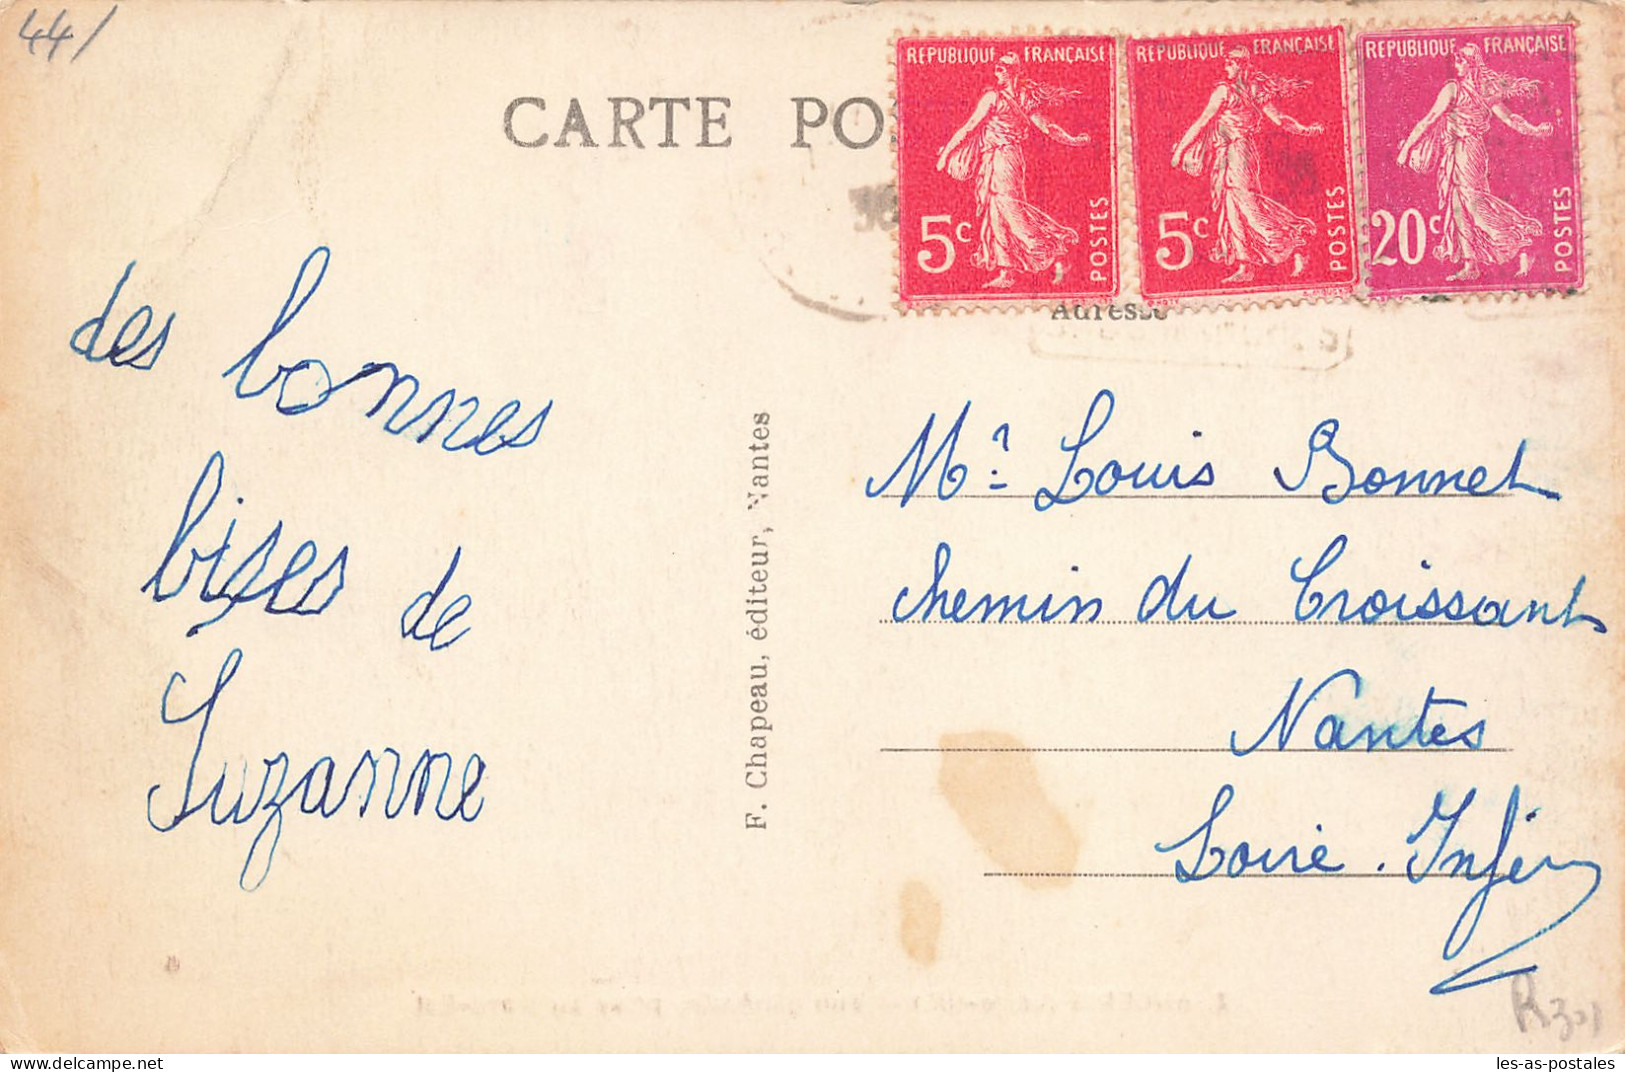 44/
CARTE PO
REPUBLIQUE FRANÇAISE
5c
POSTES
REPUBLIQUE FRANÇAISE
5c
POSTES
REPUBLIQUE FRANÇAISE
20c
POSTES
Adresse
des bonnes
bises de
Suzanne
F. Chapeau, éditeur, Nantes
Mr Louis Bonnet
chemin du Croissant
Nantes
Loire. Infér
les-as-postales